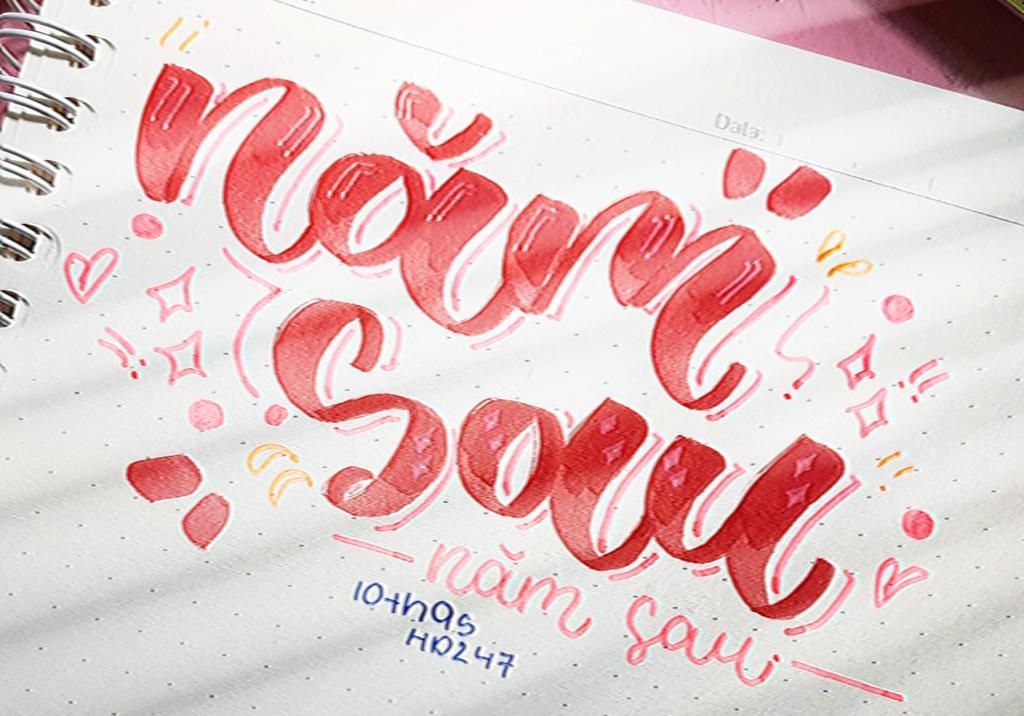 Data:
năm
sau
năm sau
10th9s
HD247